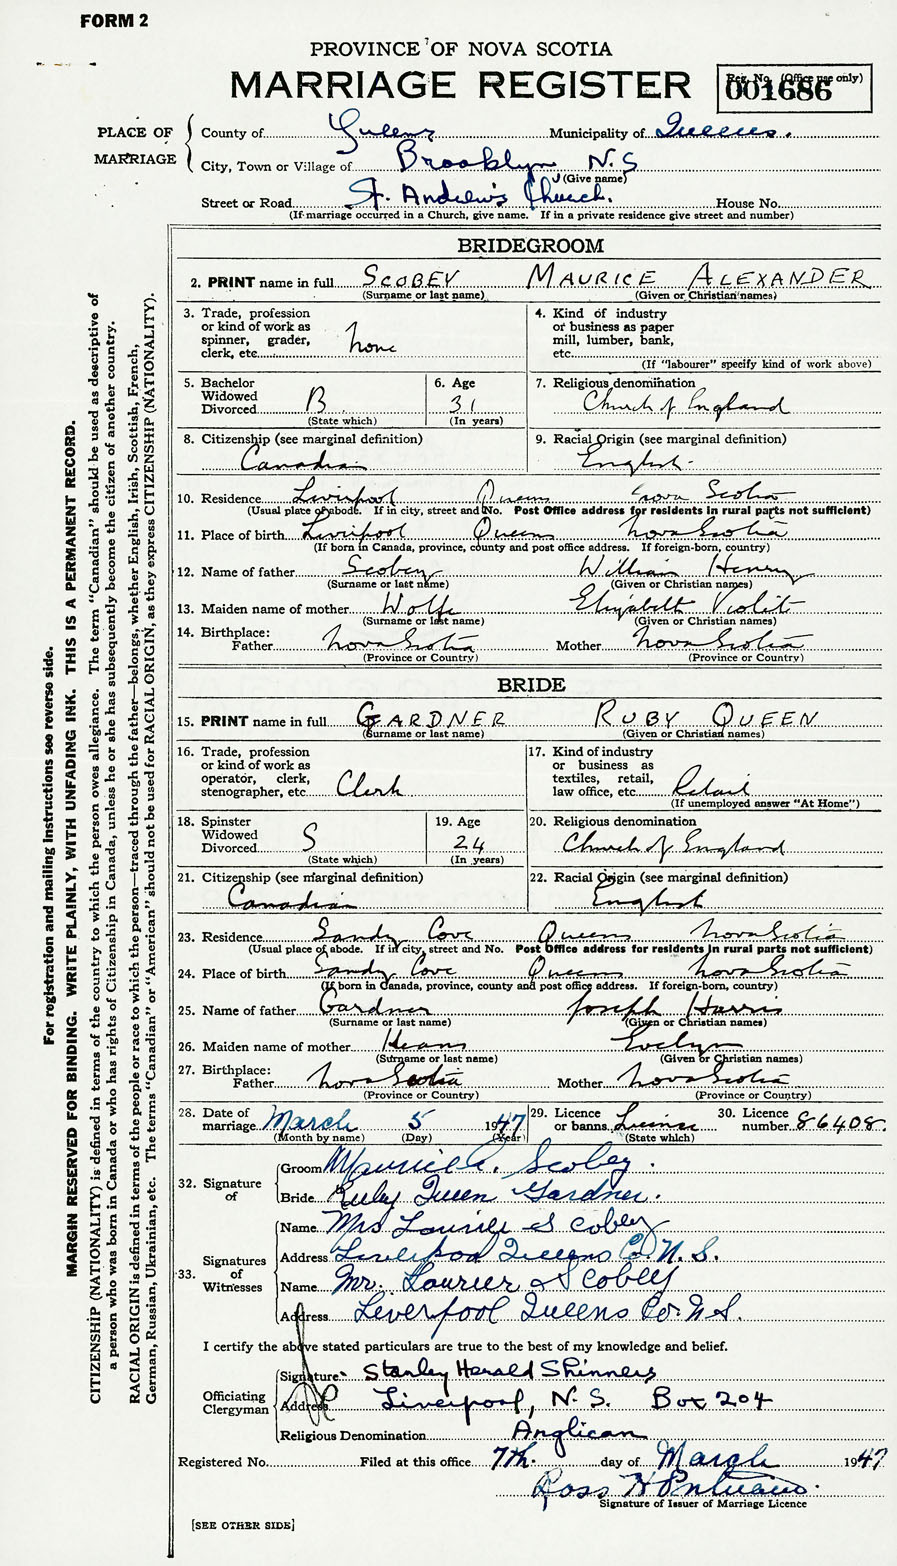 FORM 2
PROVINCE OF NOVA SCOTIA
MARRIAGE REGISTER
Reg. No. (Office use only)
001686
PLACE OF MARRIAGE
County of Queens Municipality of Queens.
City, Town or Village of Brooklyn N.S
(Give name)
Street or Road St. Andrew's Church. House No.
(If marriage occurred in a Church, give name. If in a private residence give street and number)
BRIDEGROOM
2. PRINT name in full SCOBEY MAURICE ALEXANDER
(Surname or last name) (Given or Christian names)
3. Trade, profession or kind of work as spinner, grader, clerk, etc. None
4. Kind of industry or business as paper mill, lumber, bank, etc.
(If "labourer" specify kind of work above)
5. Bachelor Widowed Divorced B.
(State which)
6. Age 31
(In years)
7. Religious denomination
Church of England
8. Citizenship (see marginal definition)
Canadian
9. Racial Origin (see marginal definition)
English
10. Residence Liverpool Queens Nova Scotia
(Usual place of abode. If in city, street and No. Post Office address for residents in rural parts not sufficient)
11. Place of birth Liverpool Queens Nova Scotia
(If born in Canada, province, county and post office address. If foreign-born, country)
12. Name of father Scobey William Henry
(Surname or last name) (Given or Christian names)
13. Maiden name of mother Wolfe Elizabeth Violit
(Surname or last name) (Given or Christian names)
14. Birthplace:
Father Nova Scotia Mother Nova Scotia
(Province or Country) (Province or Country)
BRIDE
15. PRINT name in full GARDNER RUBY QUEEN
(Surname or last name) (Given or Christian names)
16. Trade, profession or kind of work as operator, clerk, stenographer, etc. Clerk
17. Kind of industry or business as textiles, retail, law office, etc. Retail
(If unemployed answer "At Home")
18. Spinster Widowed Divorced S
(State which)
19. Age 24
(In years)
20. Religious denomination
Church of England
21. Citizenship (see marginal definition)
Canadian
22. Racial Origin (see marginal definition)
English
23. Residence Sandy Cove Queens Nova Scotia
(Usual place of abode. If in city, street and No. Post Office address for residents in rural parts not sufficient)
24. Place of birth Sandy Cove Queens Nova Scotia
(If born in Canada, province, county and post office address. If foreign-born, country)
25. Name of father Gardner Joseph Harris
(Surname or last name) (Given or Christian names)
26. Maiden name of mother Evelyn
(Surname or last name) (Given or Christian names)
27. Birthplace:
Father Nova Scotia Mother Nova Scotia
(Province or Country) (Province or Country)
28. Date of marriage March 5 1947
(Month by name) (Day) (Year)
29. Licence or banns License
(State which)
30. Licence number 86408.
32. Signature of
Groom Maurice A. Scobey.
Bride Ruby Queen Gardner.
33. Signatures of Witnesses
Name Mrs Laurier Scobey
Address Liverpool Queens Co. N.S.
Name Mr. Laurier Scobey
Address Leverpool Queens Co. N.S.
I certify the above stated particulars are true to the best of my knowledge and belief.
Officiating Clergyman
Signature Stanley Herald Shinners
Address Liverpool, N.S. Box 204
Religious Denomination Anglican
Registered No. Filed at this office 7th. day of March 1947
Ross H
Signature of Issuer of Marriage Licence
[SEE OTHER SIDE]
For registration and mailing instructions see reverse side.
MARGIN RESERVED FOR BINDING. WRITE PLAINLY, WITH UNFADING INK. THIS IS A PERMANENT RECORD.
CITIZENSHIP (NATIONALITY) is defined in terms of the country to which the person owes allegiance. The term "Canadian" should be used as descriptive of
a person who was born in Canada or who has rights of Citizenship in Canada, unless he or she has subsequently become the citizen of another country.
RACIAL ORIGIN is defined in terms of the people or race to which the person—traced through the father—belongs, whether English, Irish, Scottish, French,
German, Russian, Ukrainian, etc. The terms "Canadian" or "American" should not be used for RACIAL ORIGIN, as they express CITIZENSHIP (NATIONALITY).